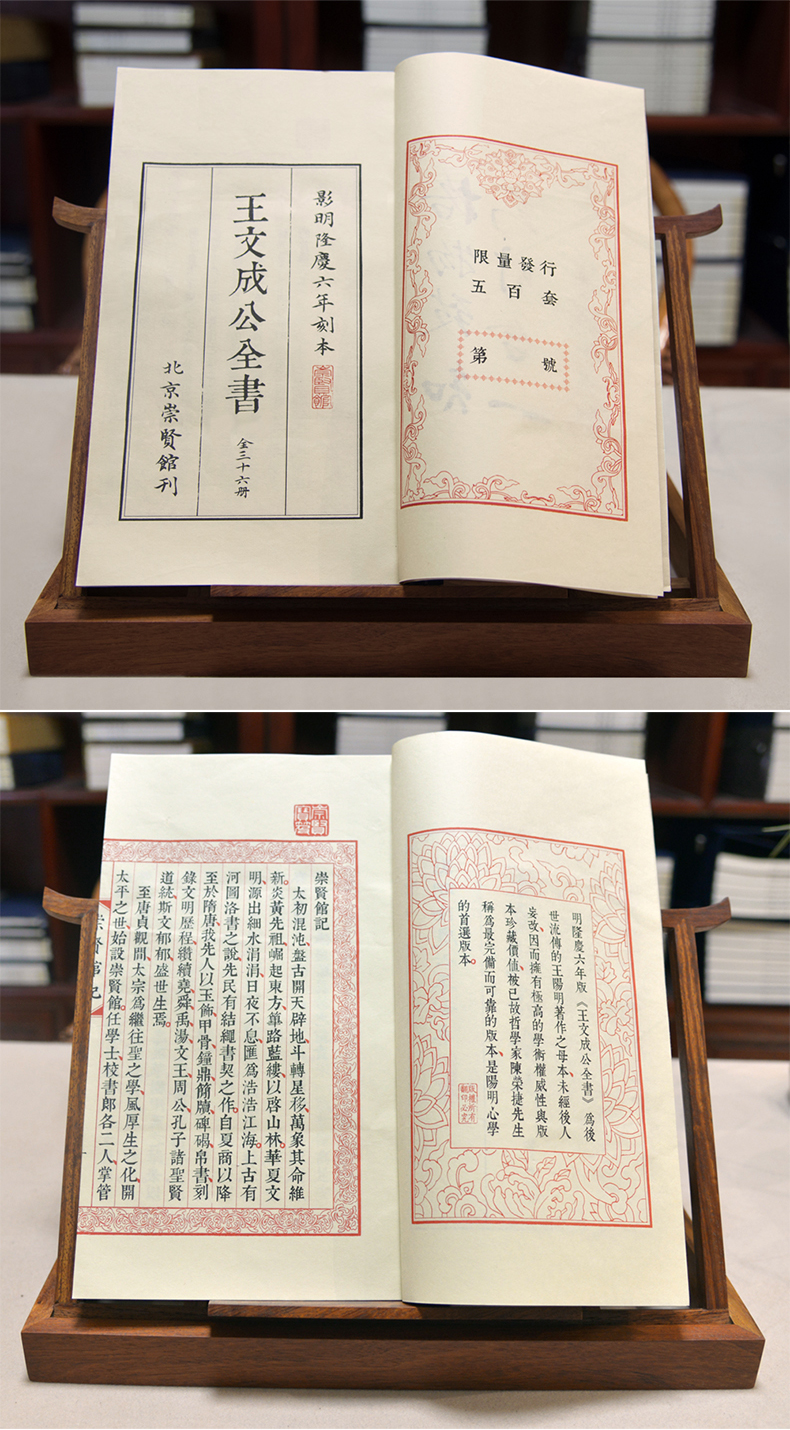 限量發行
五百套
第 號
影明隆慶六年刻本
崇賢館
王文成公全書 全三十六册
北京崇賢館刊
明隆慶六年版《王文成公全書》爲後
世流傳的王陽明著作之母本、未經後人
妄改、因而擁有極高的學術權威性與版
本珍藏價值、被已故哲學家陳榮捷先生
稱爲最完備而可靠的版本、是陽明心學
的首選版本。
版權所有
翻印必究
崇賢館記
太初混沌、盤古開天辟地、斗轉星移、萬象其命維
新。炎黃先祖、崛起東方、篳路藍縷、以啓山林。華夏文
明、源出細水涓涓、日夜不息、匯爲浩浩江海。上古有
河圖洛書之說、先民有結繩書契之作、自夏商以降
至於隋唐、我先人以玉飾甲骨、鐘鼎簡牘、碑碣帛書、刻
錄文明歷程、纘續堯舜禹湯文王周公孔子諸聖賢
道統、斯文郁郁、盛世生焉。
至唐貞觀間、太宗爲繼往聖之學、風厚生之化、開
太平之世、始設崇賢館。任學士、校書郎各二人、掌管
崇賢館記